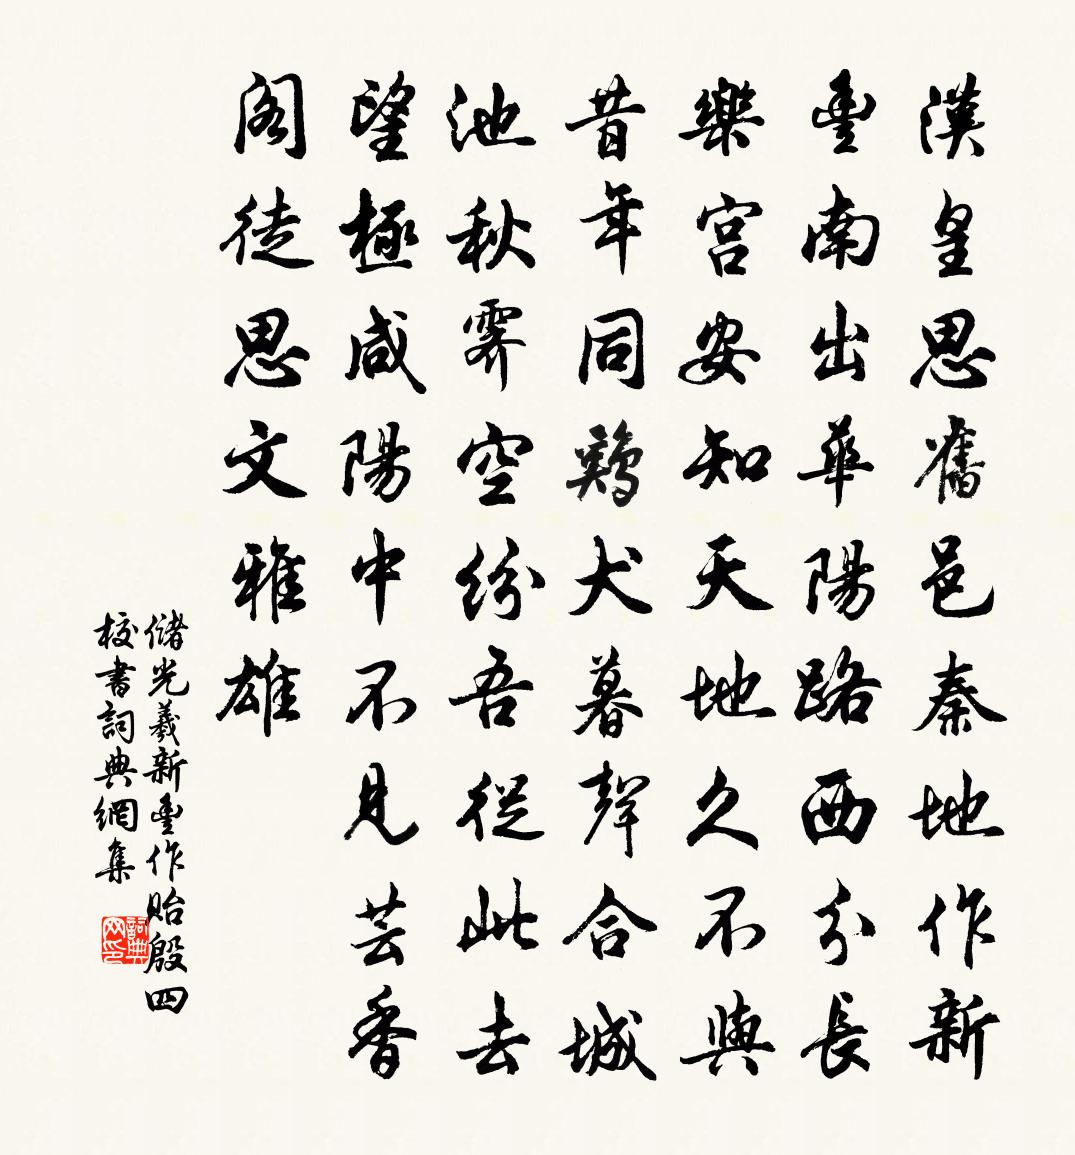 漢皇思舊邑秦地作新
豐南出華陽路西分長
樂宮安知天地久不與
昔年同鷄犬暮聲合城
池秋霽空紛吾從此去
望極咸陽中不見芸香
閣徒思文雅雄
儲光羲新豐作貽殷四
校書詞典網集
詞典
网印